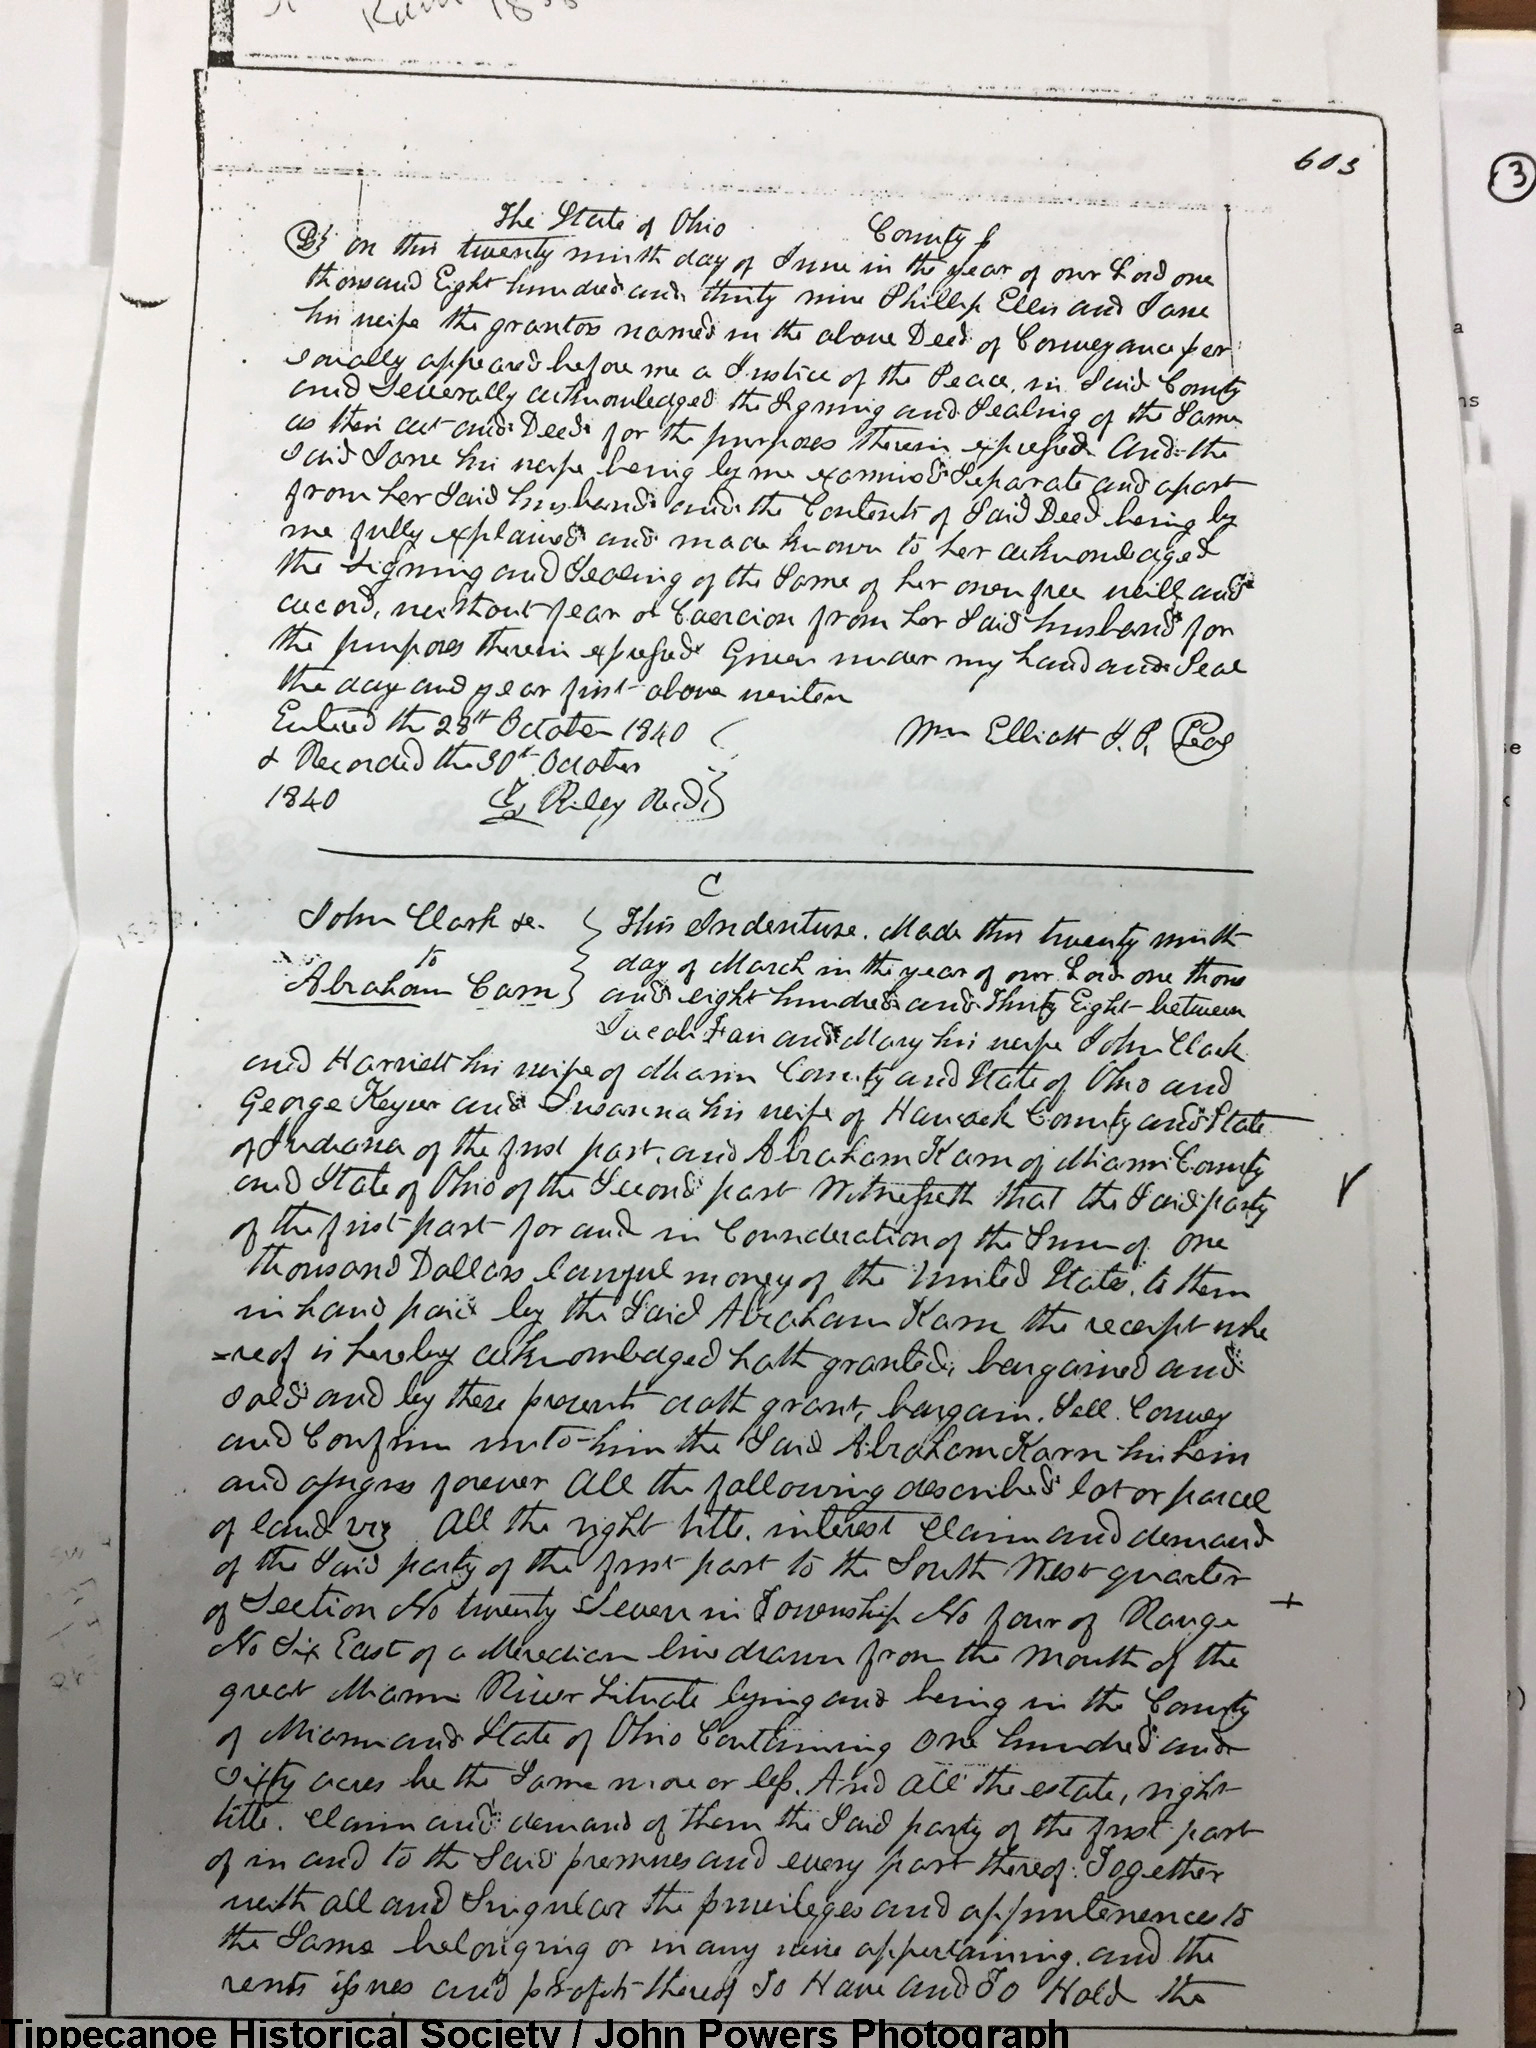 Karn 1838
603
3
The State of Ohio County
on this twenty ninth day of June in the year of our Lord one
thousand Eight hundred and thirty nine Phillip Ellis and Jane
his wife the grantors named in the above Deed of Conveyance per
sonally appeared before me a Justice of the Peace in Said County
and Severally acknowledged the Signing and Sealing of the Same
as their act and Deed for the purposes therein expressed And the
Said Jane his wife being by me examined Separate and apart
from her Said husband and the Contents of Said Deed being by
me fully explained and made known to her acknowledged
the Signing and Sealing of the Same of her own free will and
accord, without fear or Coercion from her Said husband for
the purposes therein expressed Given under my hand and Seal
the day and year first above writen
Entered the 28th October 1840
Wm Elliott J. P. Seal
& Recorded the 30th October
1840 Riley Recd
C
John Clark &c.
to
Abraham Carn
This Indenture. Made this twenty ninth
day of March in the year of our Lord one thous
and eight hundred and Thirty Eight between
Jacob Fair and Mary his wife John Clark
and Harriett his wife of Miami County and State of Ohio and
George Keyser and Susanna his wife of Hancock County and State
of Indiana of the first part, and Abraham Karn of Miami County
and State of Ohio of the Second part Witnesseth that the Said party
of the first part for and in Consideration of the Sum of one
thousand Dollars lawful money of the United States, to them
in hand paid by the Said Abraham Karn the receipt whe
=reof is hereby acknowledged hath granted, bargained and
Sold and by these presents doth grant, bargain, Sell. Convey
and Confirm unto him the Said Abraham Karn his heirs
and assigns forever All the following described lot or parcel
of land viz All the right title. interest Claim and demand
of the Said party of the first part to the South West quarter
of Section No twenty Seven in Township No four of Range
No Six East of a Meredian line drawn from the Mouth of the
great Miami River Situate lying and being in the County
of Miami and State of Ohio Containing one hundred and
Sixty acres be the Same more or less. And all the estate, right
title. Claim and demand of them the Said party of the first part
of in and to the Said premises and every part thereof: Together
with all and Singular the privileges and appurtenences to
the Same belonging or in any wise appertaining. and the
rents issues and profits thereof To Have and To Hold the
Tippecanoe Historical Society / John Powers Photograph